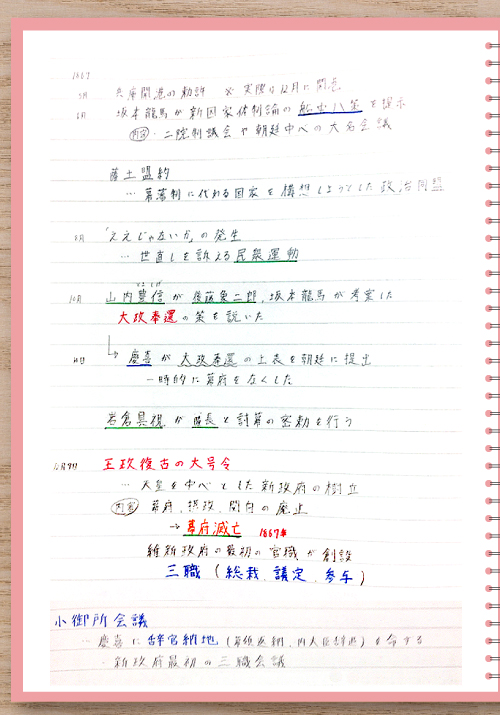 1867
5月 兵庫開港の勅許 ※ 実際は12月に開港
6月 坂本龍馬が新国家体制論の船中八策を提示
内容・二院制議会や朝廷中心の大名会議
薩土盟約
… 幕藩制に代わる国家を構想しようとした政治同盟
8月 「ええじゃないか」の発生
… 世直しを訴える民衆運動
10月 山内豊信が後藤象二郎、坂本龍馬が考案した
大政奉還の策を説いた
14日 慶喜が大政奉還の上表を朝廷に提出
一時的に幕府をなくした
岩倉具視が薩長と討幕の密勅を行う
12月9日 王政復古の大号令
… 天皇を中心とした新政府の樹立
内容 幕府、摂政、関白の廃止
→ 幕府滅亡 1867年
維新政府の最初の官職が創設
三職(総裁、議定、参与)
小御所会議
… 慶喜に辞官納地(領地返納、内大臣辞退)を命ずる
・新政府最初の三職会議